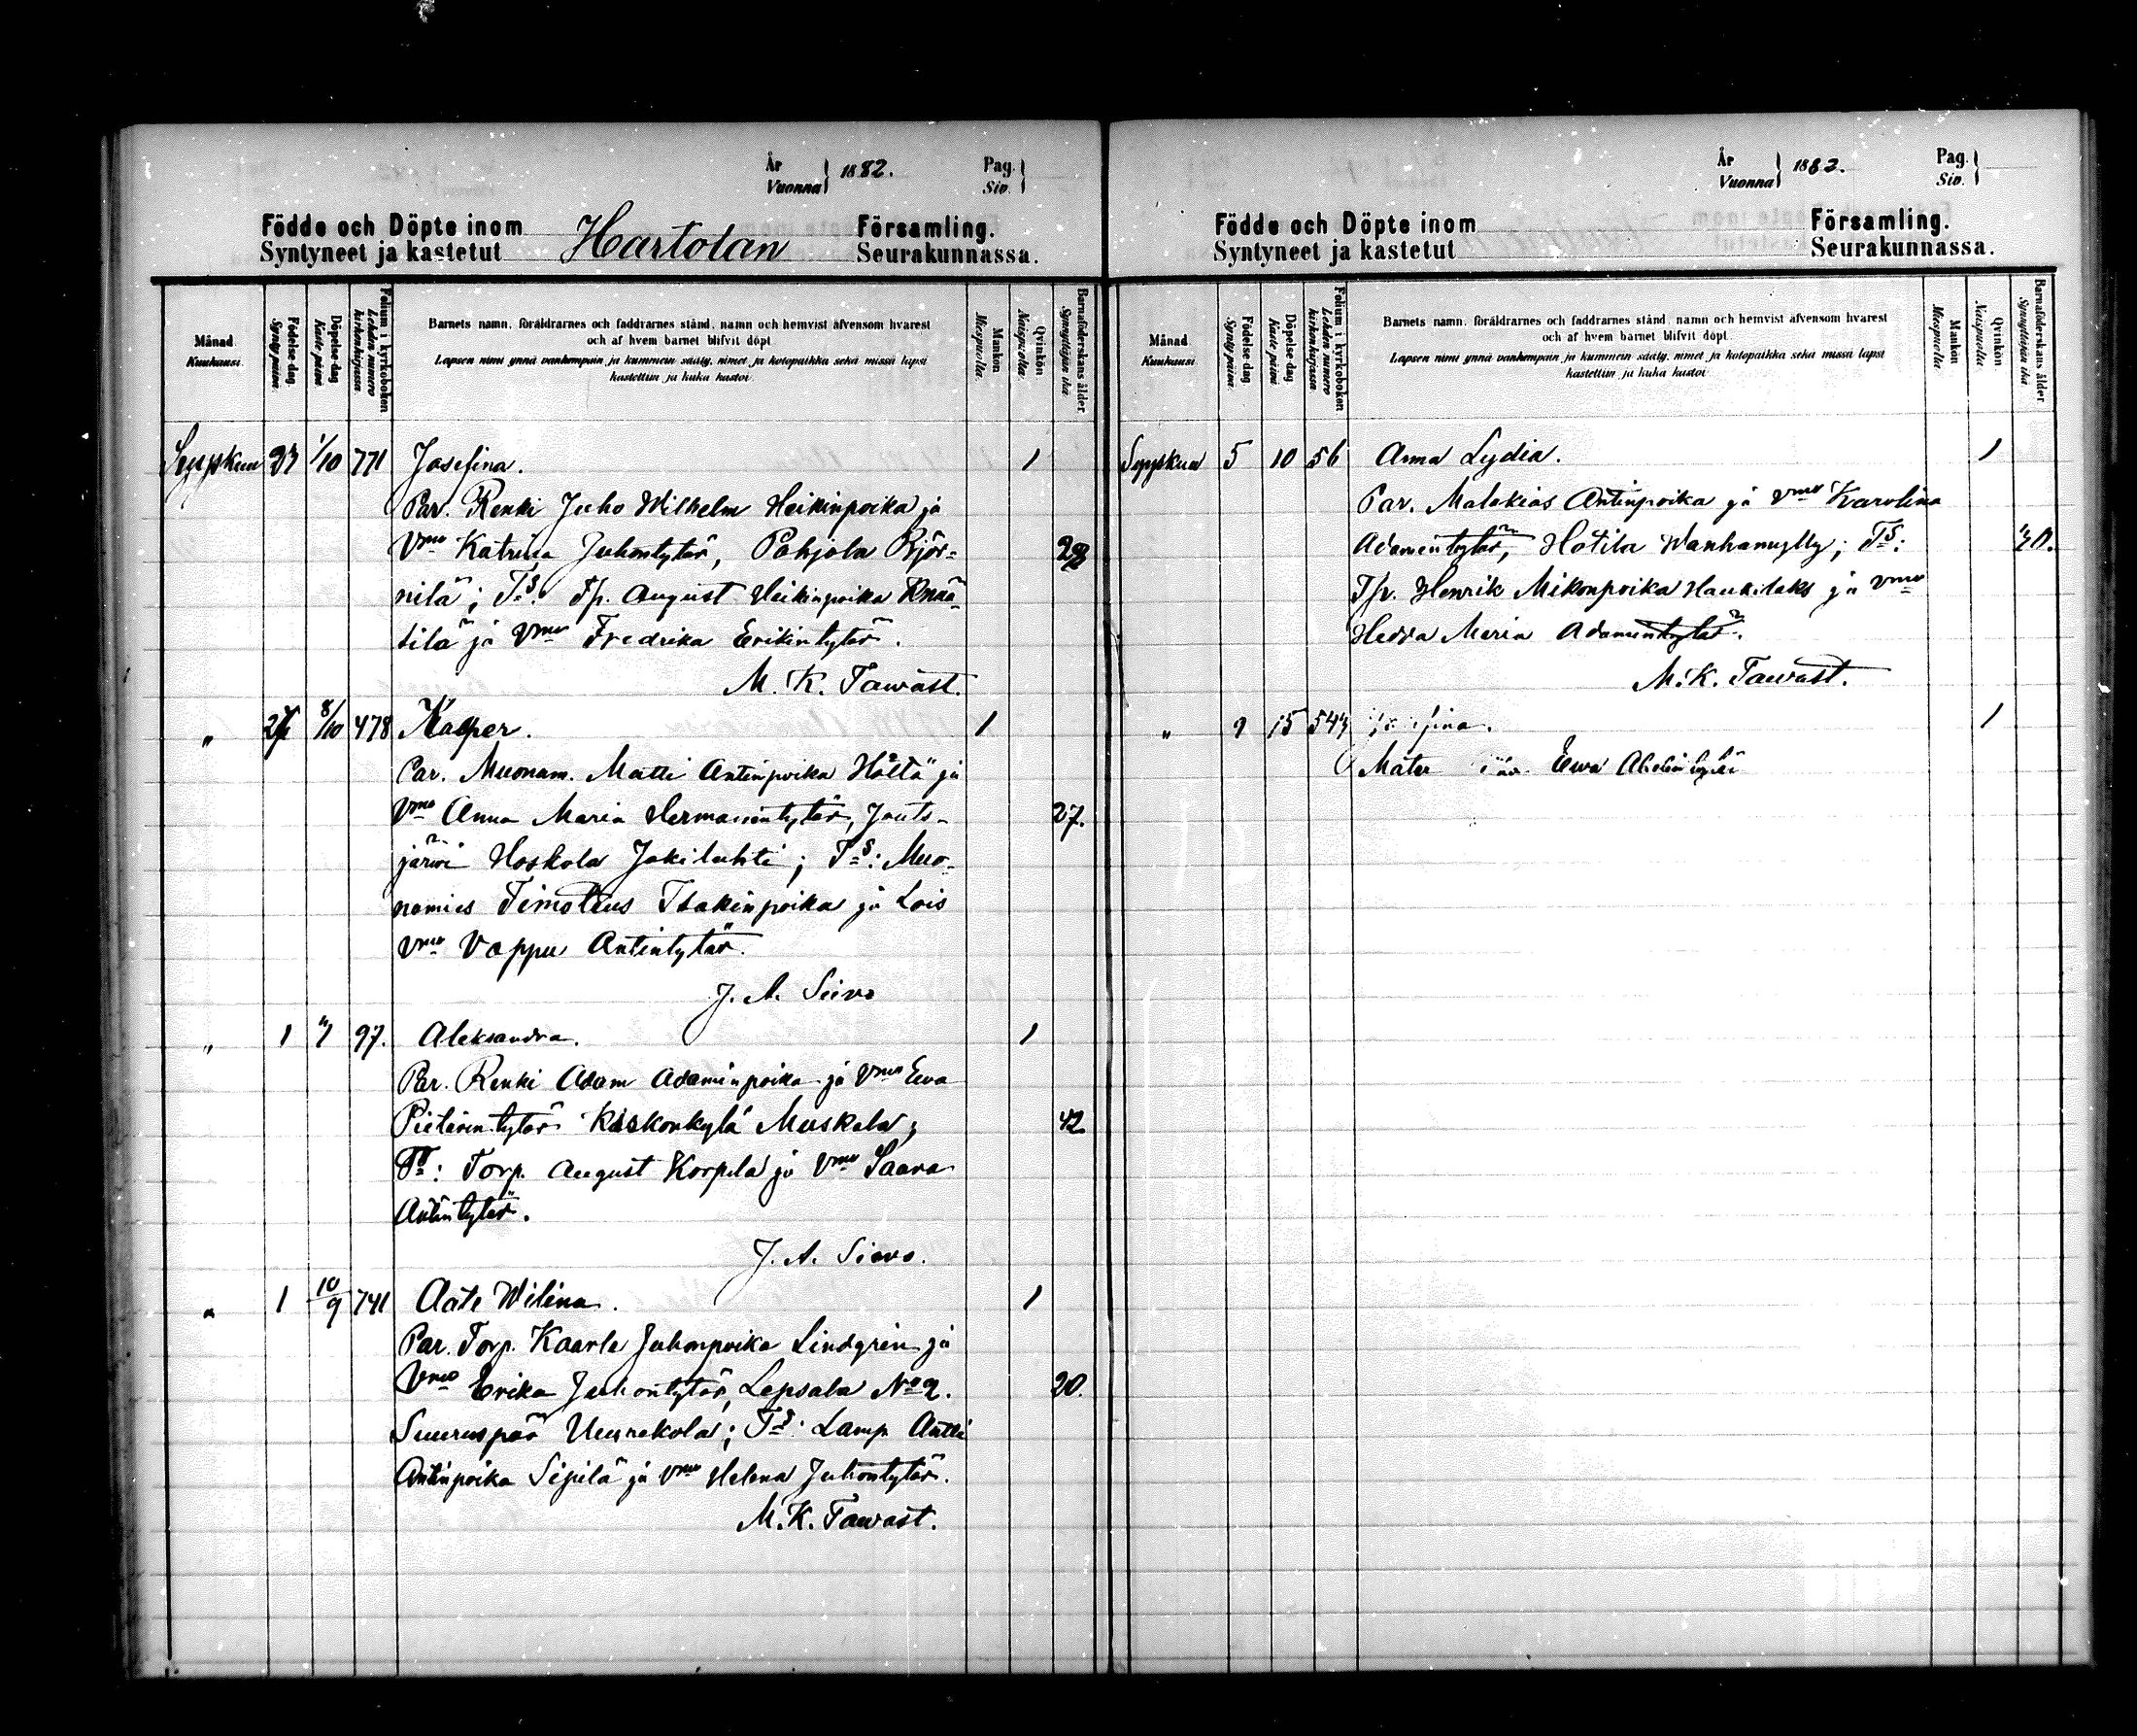 År
Vuonna } 1882.
Pag.
Siv. }
Födde och Döpte inom
Syntyneet ja kastetut
Hartolan
Församling.
Seurakunnassa.
Månad
Kuukausi.
Födelse-dag
Synty-päivä.
Döpelse-dag
Kaste-päivä
Folium i kyrkoboken
Lehden numero kirkonkirjassa
Barnets namn, föräldrarnes och faddrarnes stånd, namn och hemvist äfvensom hvarest
och af hvem barnet blifvit döpt.
Lapsen nimi ynnä vanhempain ja kummein sääty, nimet ja kotopaikka sekä missä lapsi
kastettiin ja kuka kastoi.
Mankön
Miespuolia.
Qvinkön
Naispuolia.
Barnaföderskans ålder.
Synnyttäjän ikä
Syyskuu 27 1/10 771 Josefina. 1
Par. Renki Juho Wilhelm Heikinpoika ja
Vmo Katrina Juhontytär, Pohjola Björ- 28
nilä; Ts: Tp. August Heikinpoika Knää-
tilä ja Vmo Fredrika Erikintytär.
M. K. Tawast.
" 27 8/10 478 Kasper. 1
Par. Muonam. Matti Antinpoika Hölttä ja
Vmo Anna Maria Hermanintytär, Jouts- 27.
järwi Hoskola Jokilahti; Ts: Muo-
namies Timoteus Isakinpoika ja Lois
vmo Vappu Antintytär.
J. A. Siivo
" 1 7 97. Aleksandra. 1
Par. Renki Adam Adaminpoika ja Vmo Ewa
Pieterintytär Kaskonkylä Muskela; 42
Ts: Torp. August Korpela ja Vmo Saara
Antintytär.
J. A. Siivo.
" 1 10/9 741 Aate Wilina. 1
Par. Torp. Kaarle Juhonpoika Lindgren ja
Vmo Erika Juhontytär, Lepsala No 2. 20.
Suuruspää Uurakola; Ts: Lamp. Antti
Antinpoika Sipilä ja Vmo Helena Juhontytär.
M. K. Tawast.
År
Vuonna } 1882.
Pag.
Siv. }
Födde och Döpte inom
Syntyneet ja kastetut
Församling.
Seurakunnassa.
Månad
Kuukausi.
Födelse-dag
Synty-päivä.
Döpelse-dag
Kaste-päivä
Folium i kyrkoboken
Lehden numero kirkonkirjassa
Barnets namn, föräldrarnes och faddrarnes stånd, namn och hemvist äfvensom hvarest
och af hvem barnet blifvit döpt.
Lapsen nimi ynnä vanhempain ja kummein sääty, nimet ja kotopaikka sekä missä lapsi
kastettiin ja kuka kastoi
Mankön
Miespuolia
Qvinkön
Naispuolia
Barnaföderskans ålder
Synnyttäjän ikä
Syyskuu 5 10 56 Anna Lydia. 1
Par. Malakias Antinpoika ja vmo Karolina
Adamintytär, Hotila Wanhamylly; Ts: 40.
Tp. Henrik Mikonpoika Haukilaks ja vmo
Hedda Maria Adamintytär.
M. K. Tawast.
" 9 15 547 1
Mater Ewa